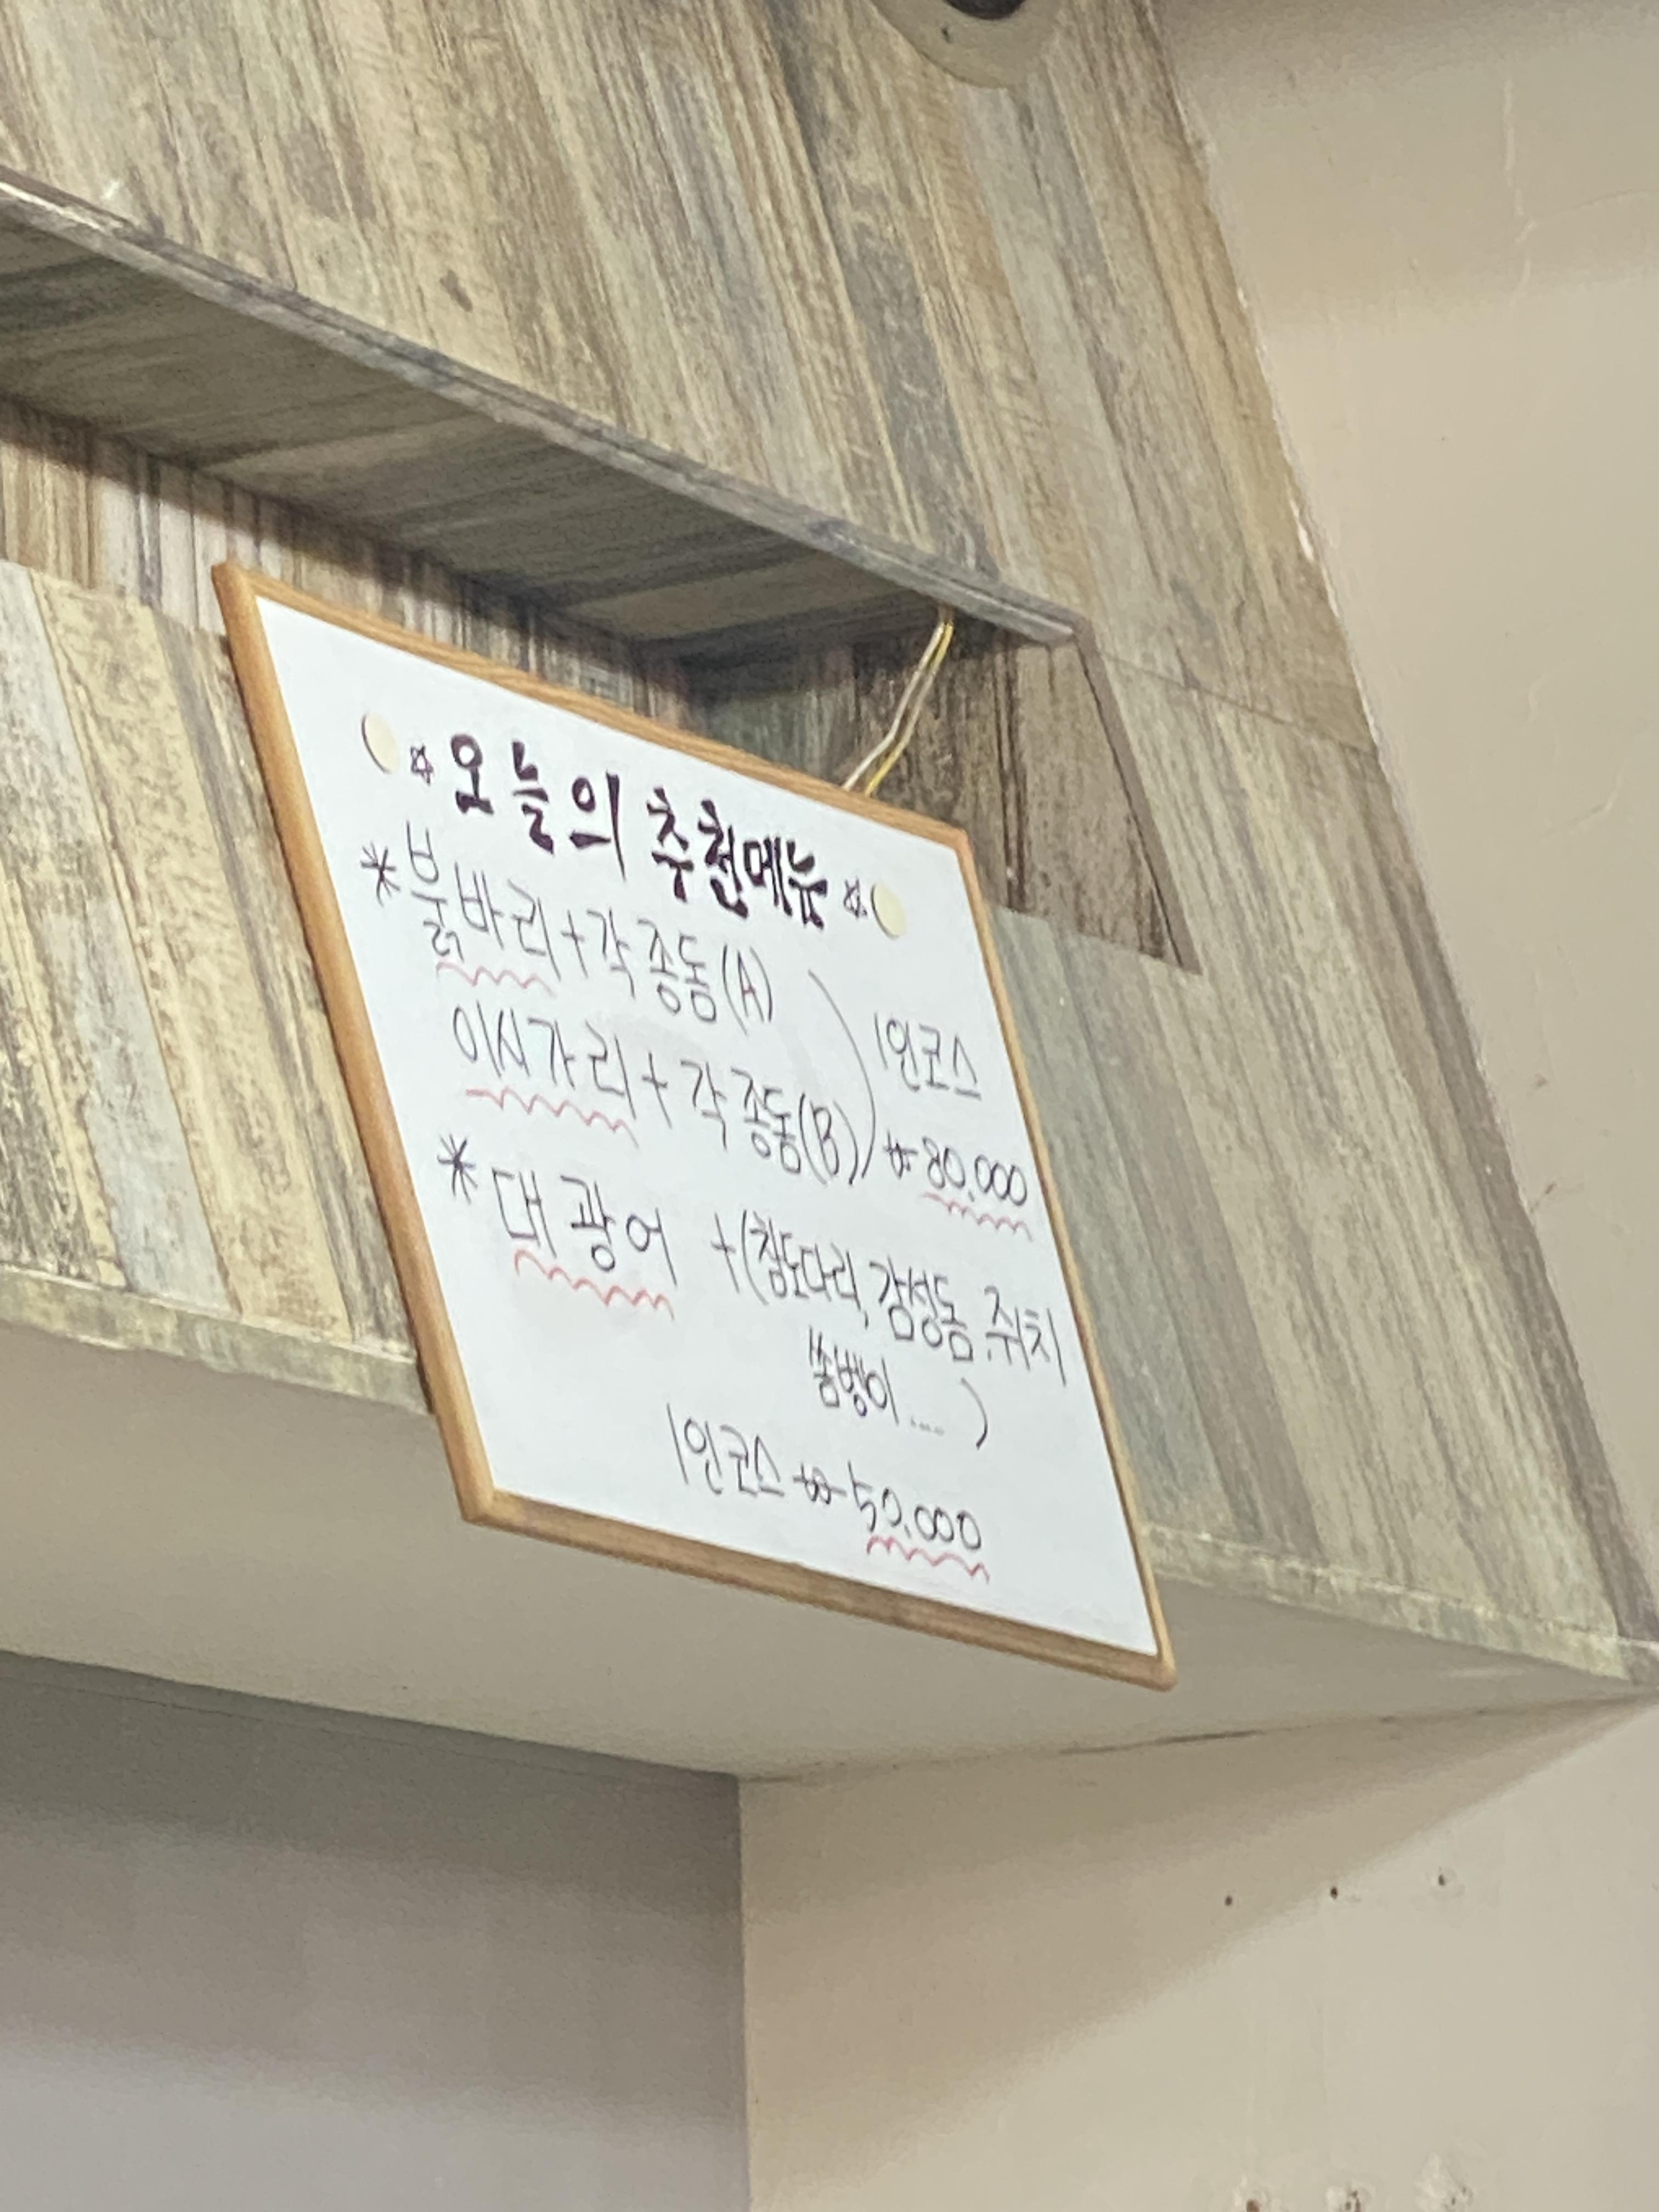 ☆오늘의 추천메뉴☆
*붉바리+각종돔(A)
이시가리+각종돔(B)
1인코스
₩80,000
*대광어 +(참도다리, 감성돔, 쥐치
쏨뱅이....)
1인코스 ₩50,000